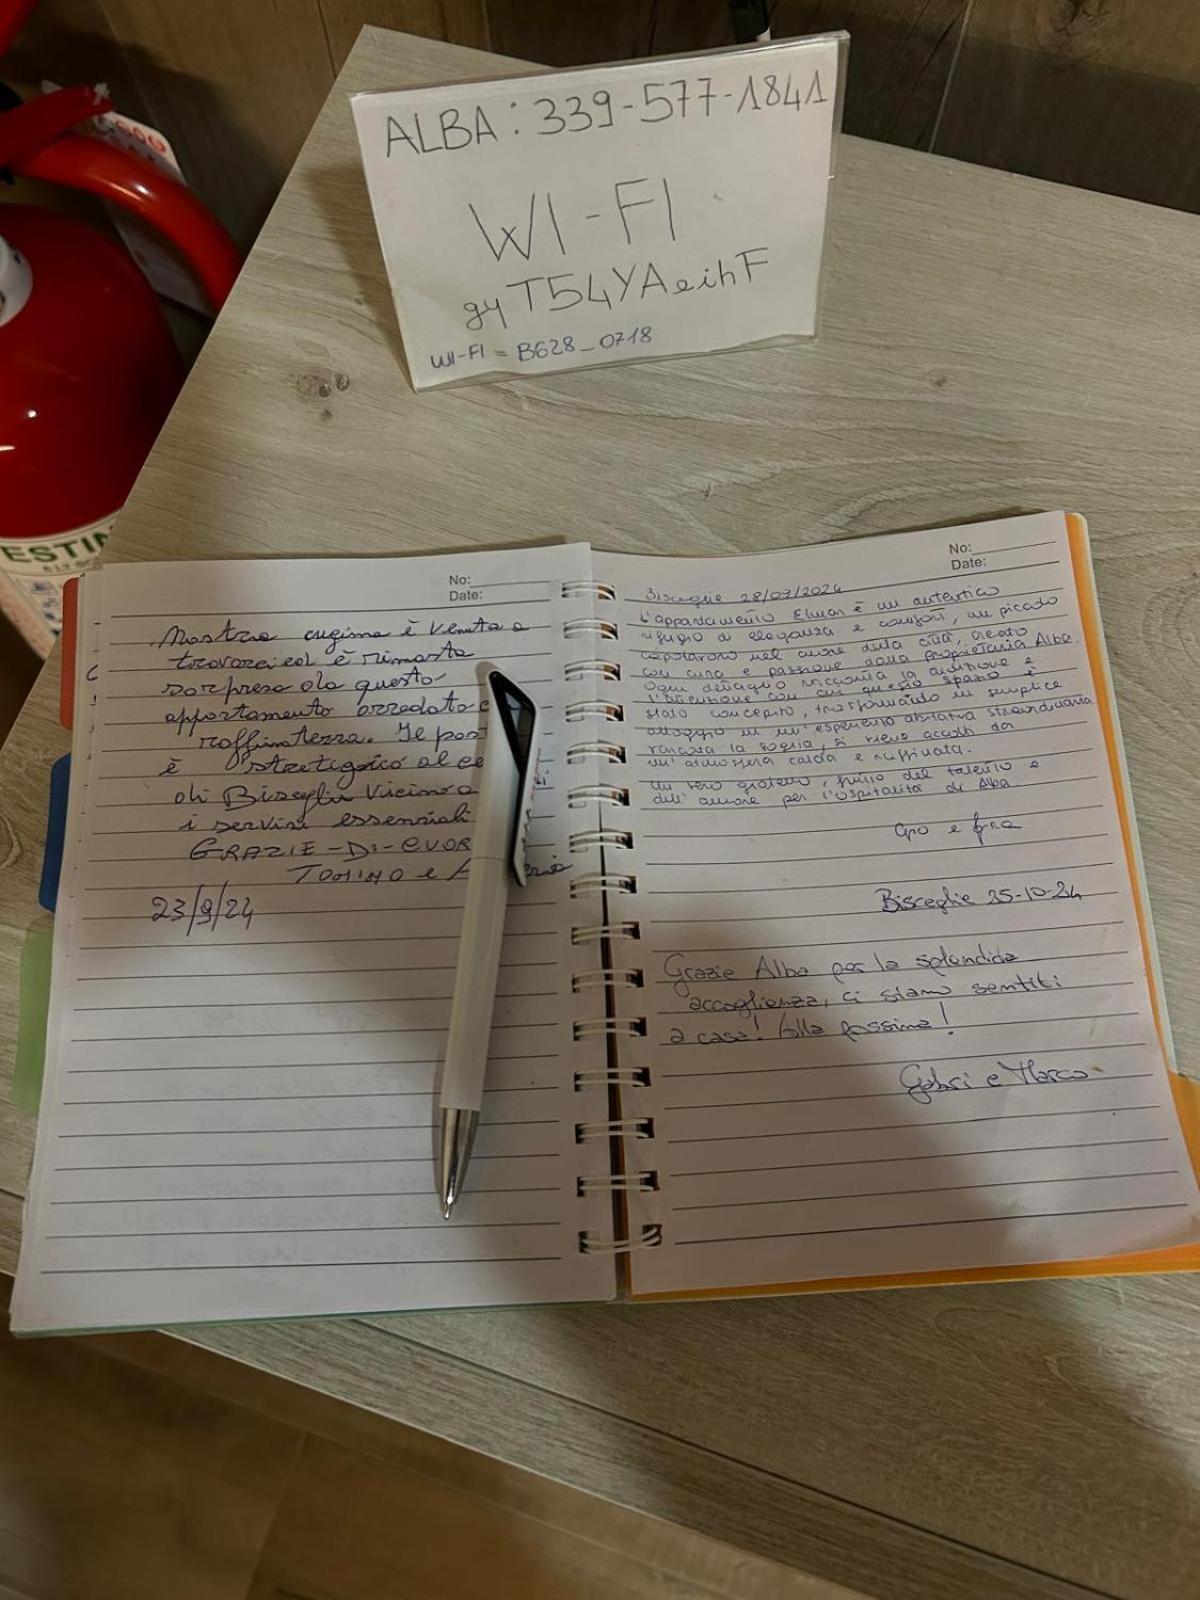 ALBA: 339-577-1841
WI-FI
gyT54YAeihF
WI-FI = B628_0718
ESTIN
No:
Date:
Nostra cugina è venuta a
trovarci ed è rimasta
sorpresa da questo
appartamento arredato
raffinatezza. Je post
è strategico al ce
di Bisceglie vicino a
i servizi essenziali
GRAZIE-DI-CUOR
TONINO e A
23/9/24
No:
Date:
Bisceglie 28/07/2024
L'appartamento Elmar è un autentico
rifugio di eleganza e comfort, un piccolo
capolavoro nel cuore della città, creato
con cura e passione dalla proprietaria Alba.
Ogni dettaglio racconta la dedizione e
l'attenzione con cui questo spazio è
stato concepito, trasformando un semplice
alloggio in un'esperienza abitativa straordinaria
varcata la soglia, si viene accolti da
un'atmosfera calda e raffinata.
Un vero gioiello, frutto del talento e
dell'amore per l'ospitalità di Alba
Gio e fra
Bisceglie 25-10-24
Grazie Alba per la splendida
accoglienza, ci siamo sentiti
a casa! Alla prossima!
Gabri e Marco